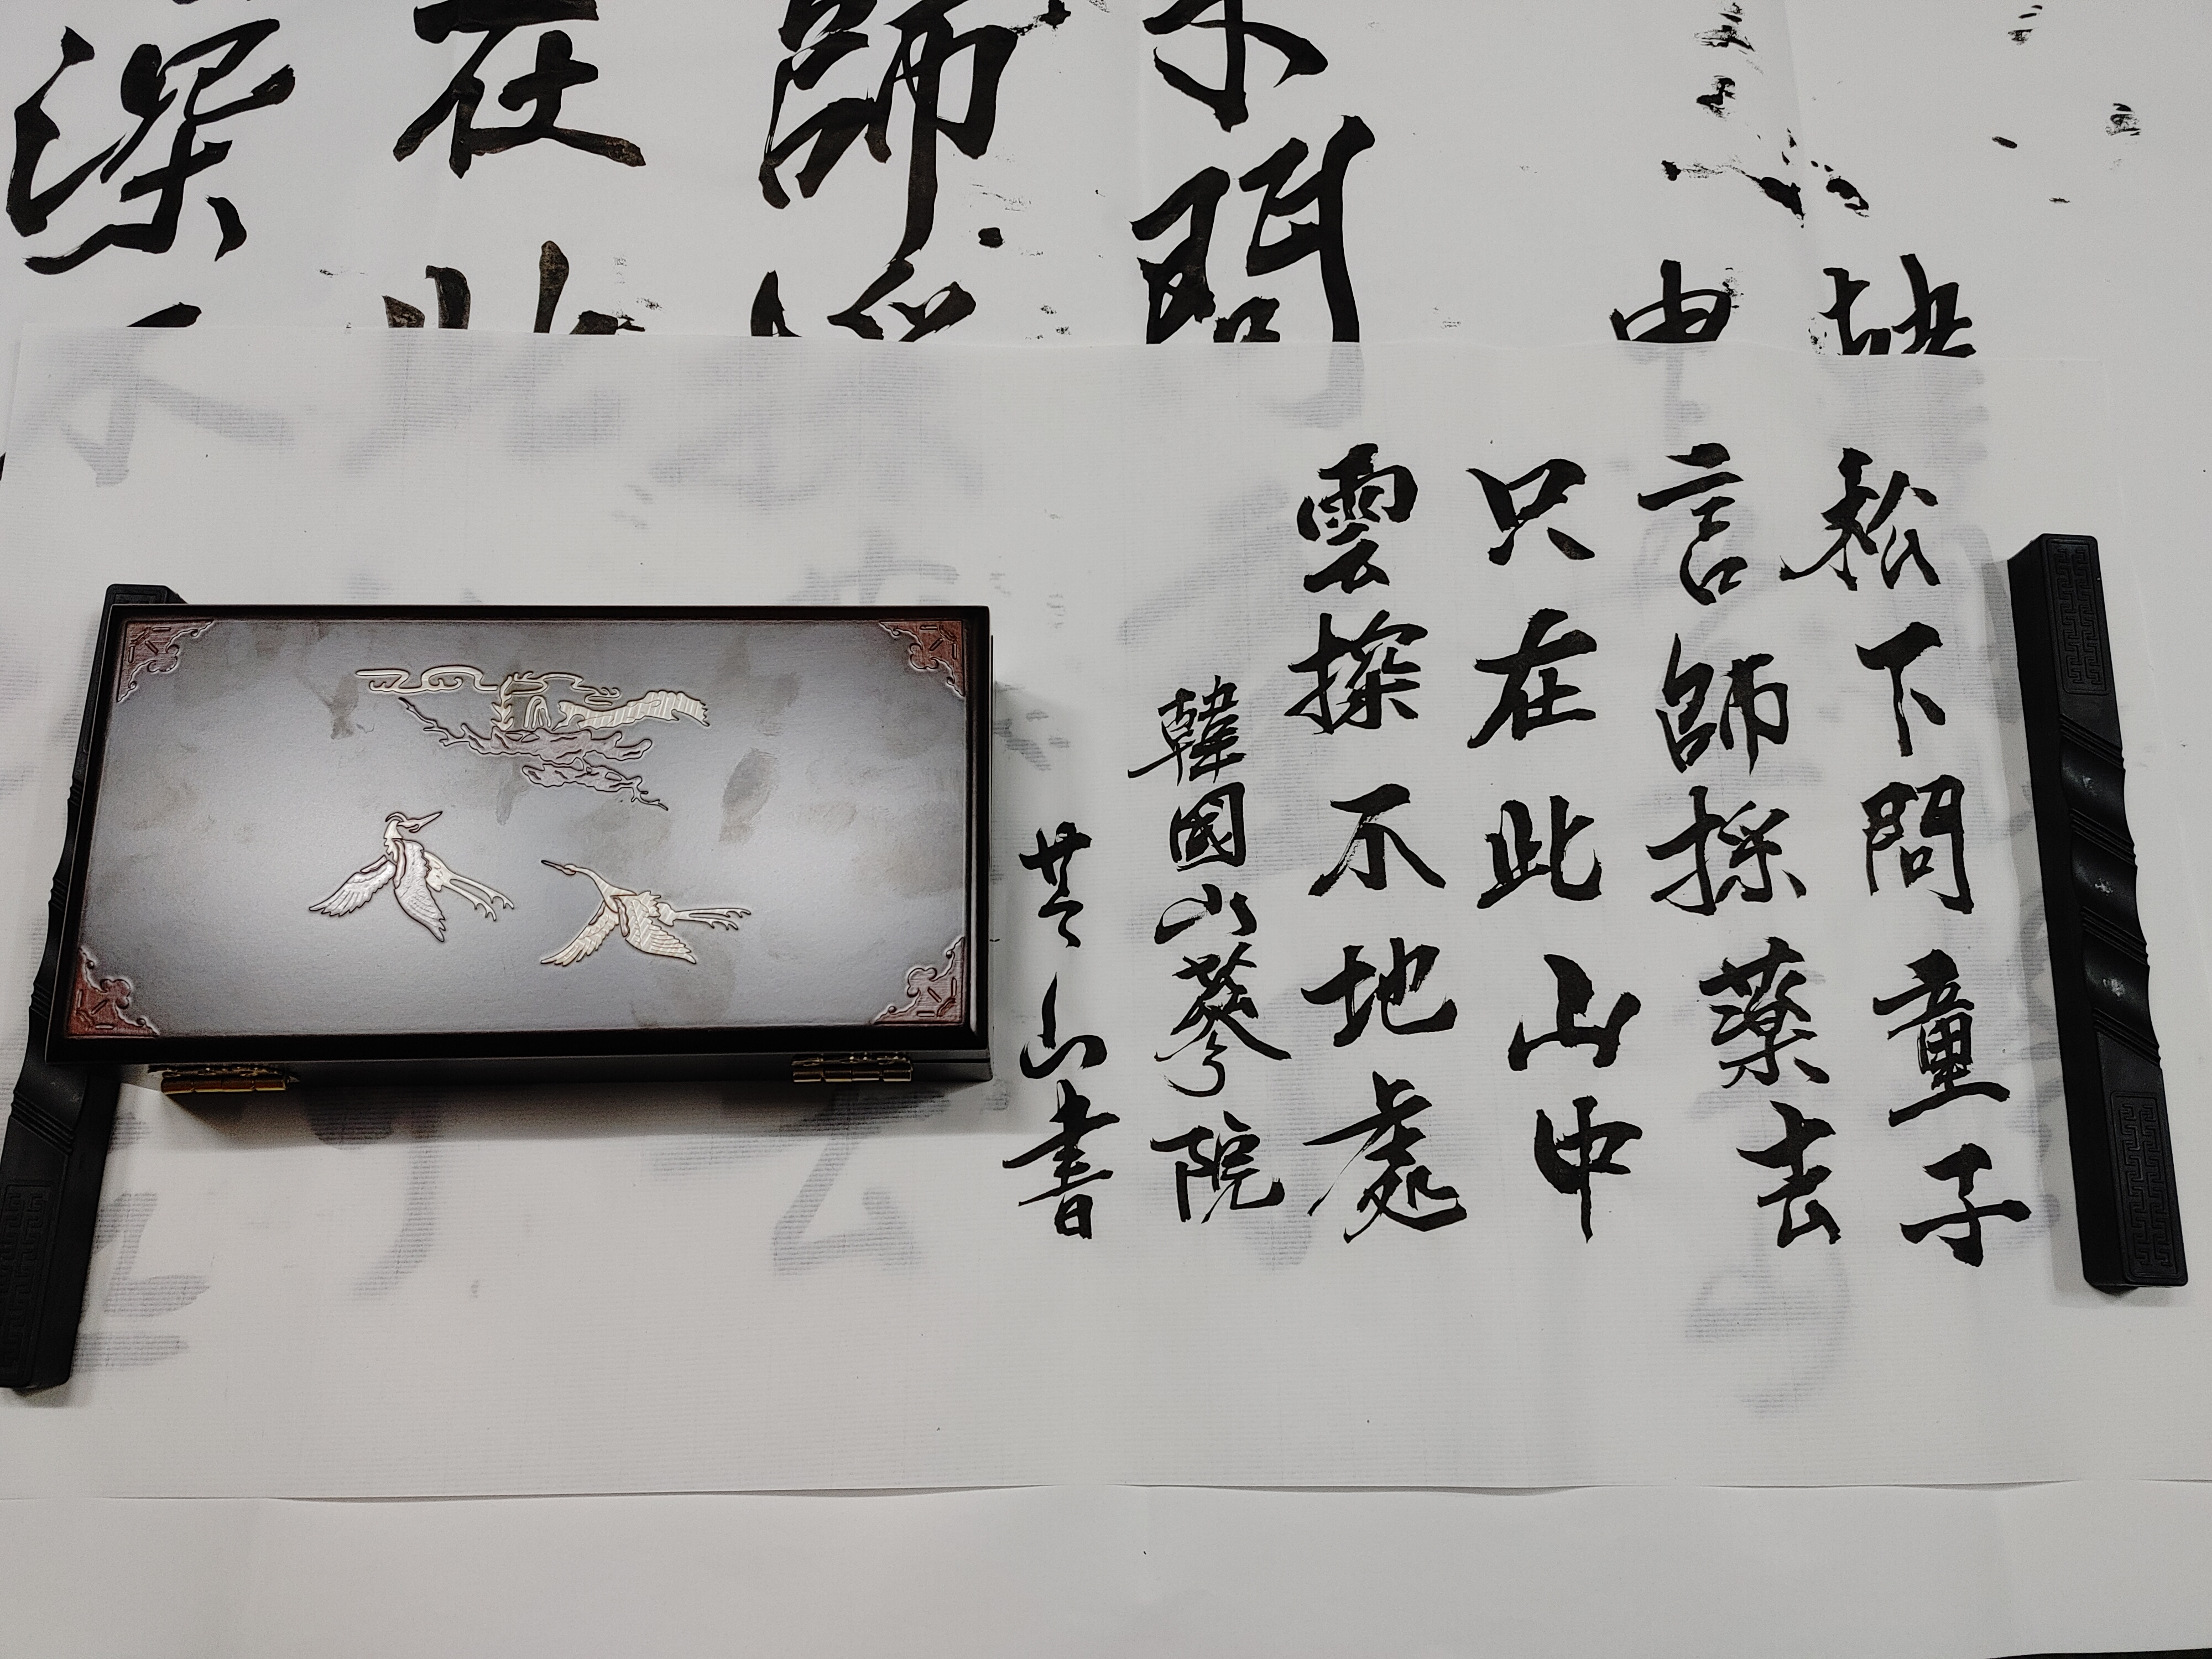 問
師
在
深
松下問童子
言師採薬去
只在此山中
雲探不地處
韓國山蔘院
芸山書